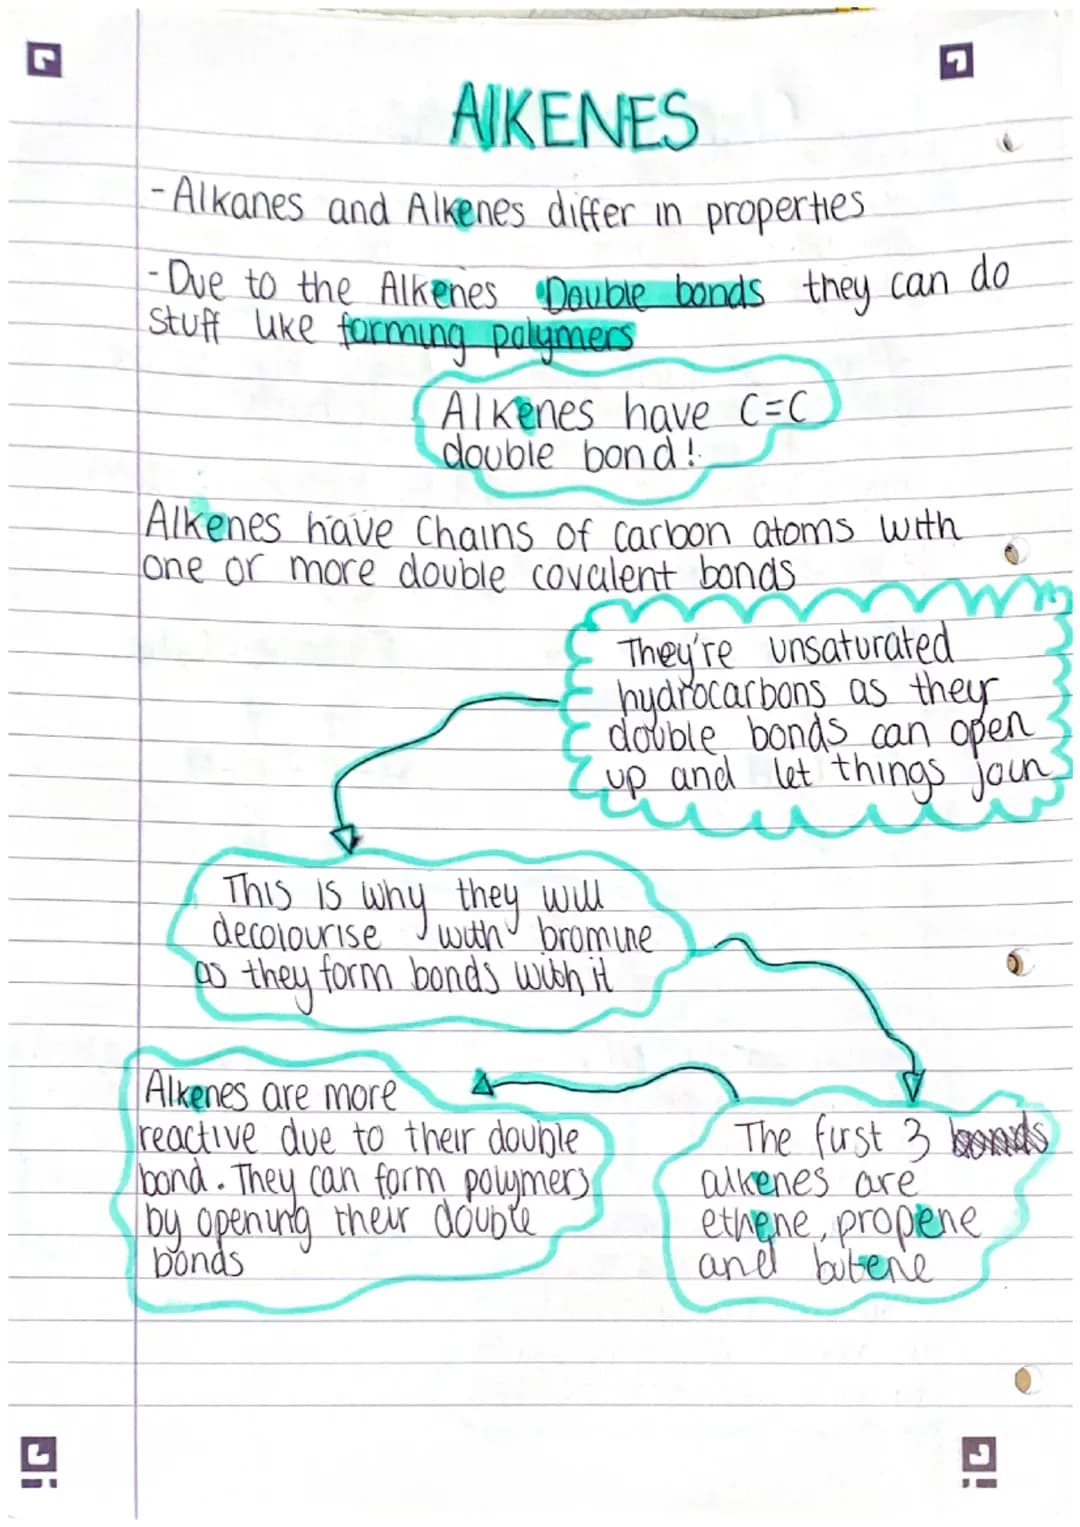 AlKENES
- Alkanes and Alkenes differ in properties
- Due to the Alkenes Double bonds they can do
stuff like forming polymers
Alkenes have C=C
double bond!
Alkenes have Chains of carbon atoms with
one or more double covalent bonds
They're unsaturated
hydrocarbons as they
double bonds can open
up and let things join
This is why they will
decolourise with bromine
as they form bonds with it
The first 3 bonds
alkenes are
ethene, propene
and butene
Alkenes are more
reactive due to their double
bond. They can form polymers
by opening their double
bonds